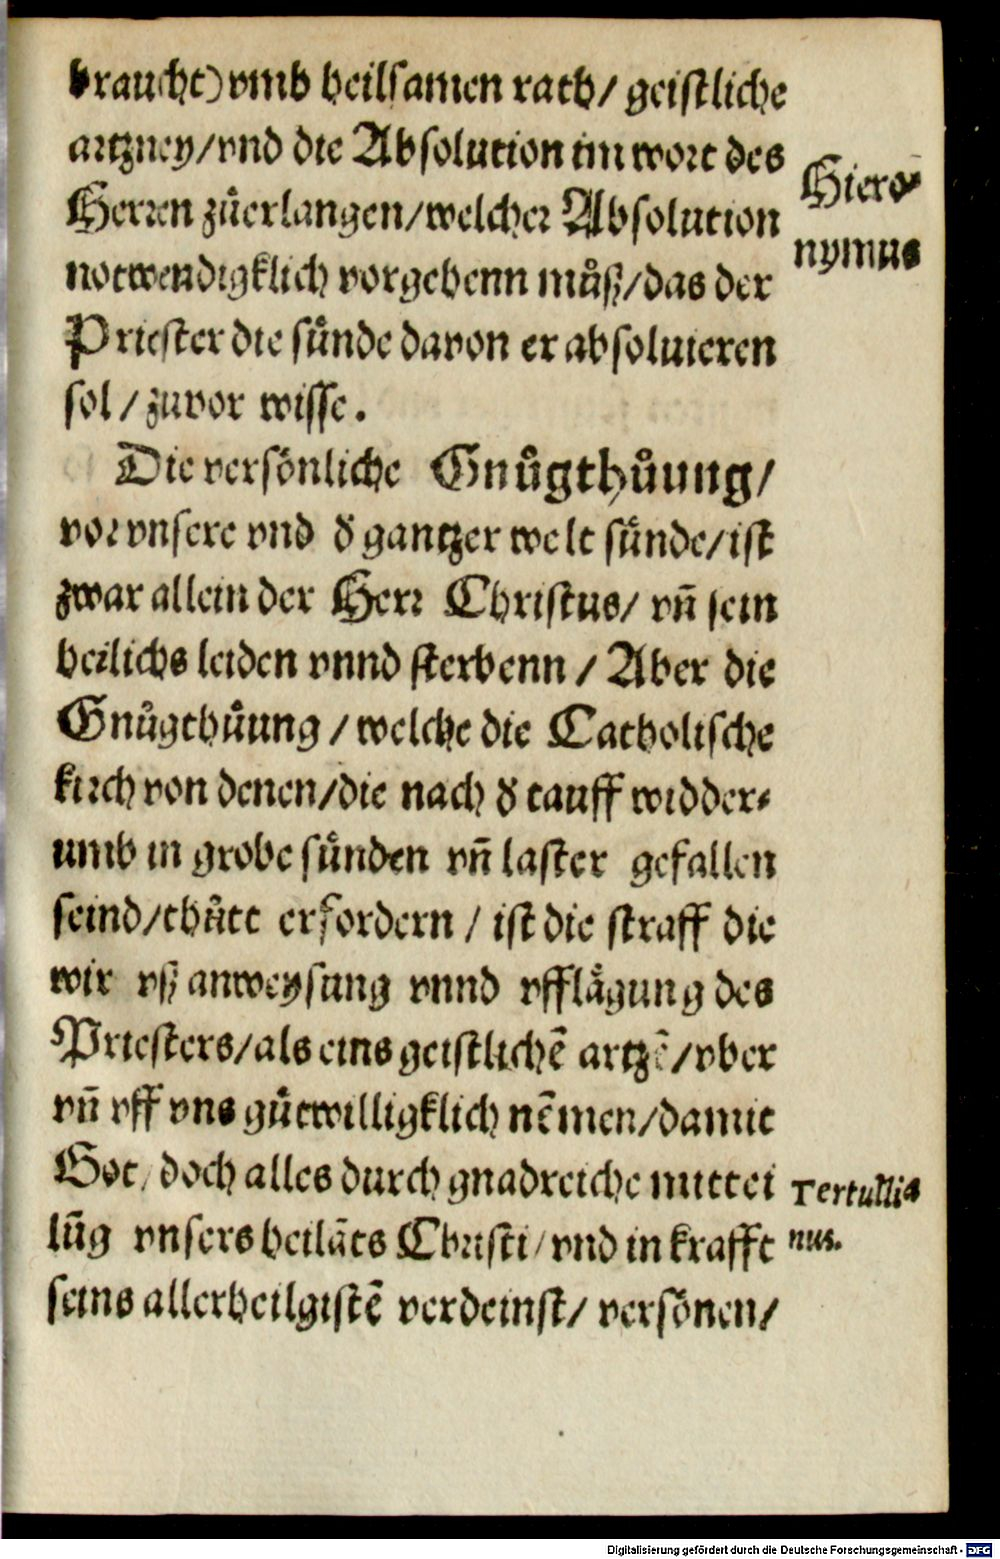 braucht) vmb heilsamen rath/ geistliche
artzney/vnd die Absolution im wort des
Herren zůerlangen/welcher Absolution
notwendigklich vorgehenn můß/das der
Priester die sünde davon er absoluieren
sol/zuvor wisse.
Hiero⸗
nymus
Die versönliche Gnůgthůung/
vor vnsere vnd ð gantzer welt sünde/ist
zwar allein der Herr Christus/ vñ sein
heilichs leiden vnnd sterbenn/Aber die
Gnůgthůung/welche die Catholische
kirch von denen/die nach ð tauff widder⸗
umb in grobe sünden vñ laster gefallen
seind/thůtt erfordern/ ist die straff die
wir vß anweysung vnnd vfflägung des
Priesters/als eins geistlichē artzē/vber
vñ vff vns gůtwilligklich nēmen/damit
Got/doch alles durch gnadreiche mittei
lũg vnsers heilāts Christi/vnd in krafft
seins allerheilgistē verdeinst/ versönen/
Tertullia
nus.
Digitalisierung gefördert durch die Deutsche Forschungsgemeinschaft - DFG